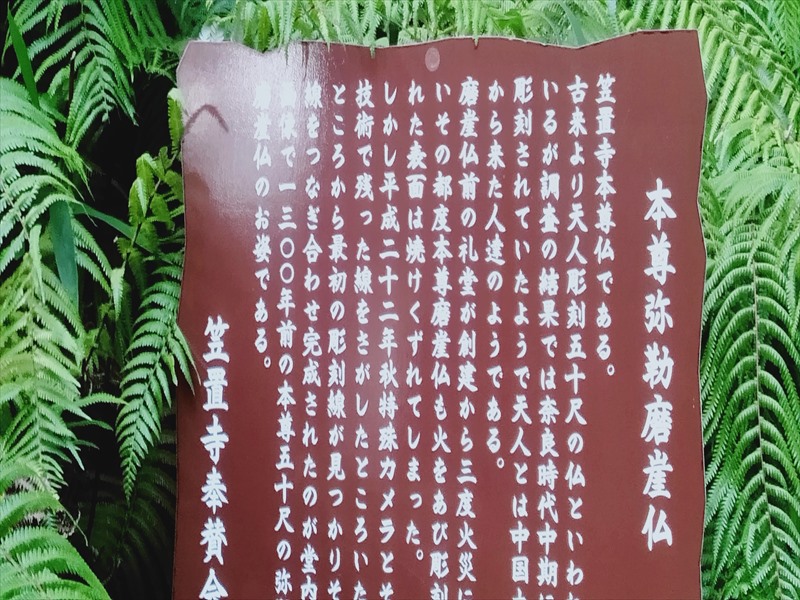 本尊弥勒磨崖仏
笠置寺本尊仏である。
古来より天人彫刻五十尺の仏といわ
いるが調査の結果では奈良時代中期に
彫刻されていたようで天人とは中国
から来た人達のようである。
磨崖仏前の礼堂が創建から三度火災に
いその都度本尊磨崖仏も火をあび彫刻
れた表面は焼けくずれてしまった。
しかし平成二十二年秋特殊カメラとそ
技術で残った線をさがしたところいた
ところから最初の彫刻線が見つかりそ
線をつなぎ合わせ完成されたのが堂内
像で一三〇〇年前の本尊五十尺の弥
磨崖仏のお姿である。
笠置寺奉賛会